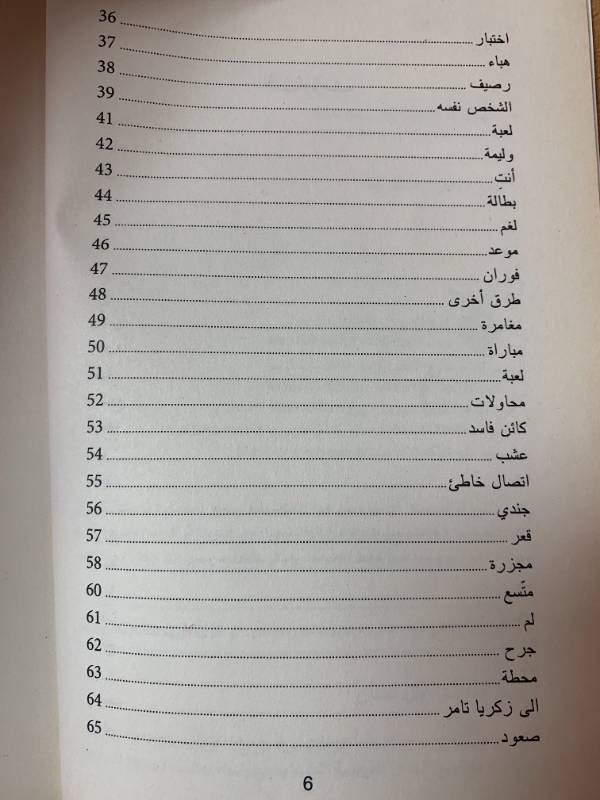 اختبار 36
هباء 37
رصيف 38
الشخص نفسه 39
لعبة 41
وليمة 42
أنتِ 43
بطالة 44
لغم 45
موعد 46
فوران 47
طرق أخرى 48
مغامرة 49
مباراة 50
لعبة 51
محاولات 52
كائن فاسد 53
عشب 54
اتصال خاطئ 55
جندي 56
قعر 57
مجزرة 58
متّسع 60
لم 61
جرح 62
محطة 63
الى زكريا تامر 64
صعود 65
6